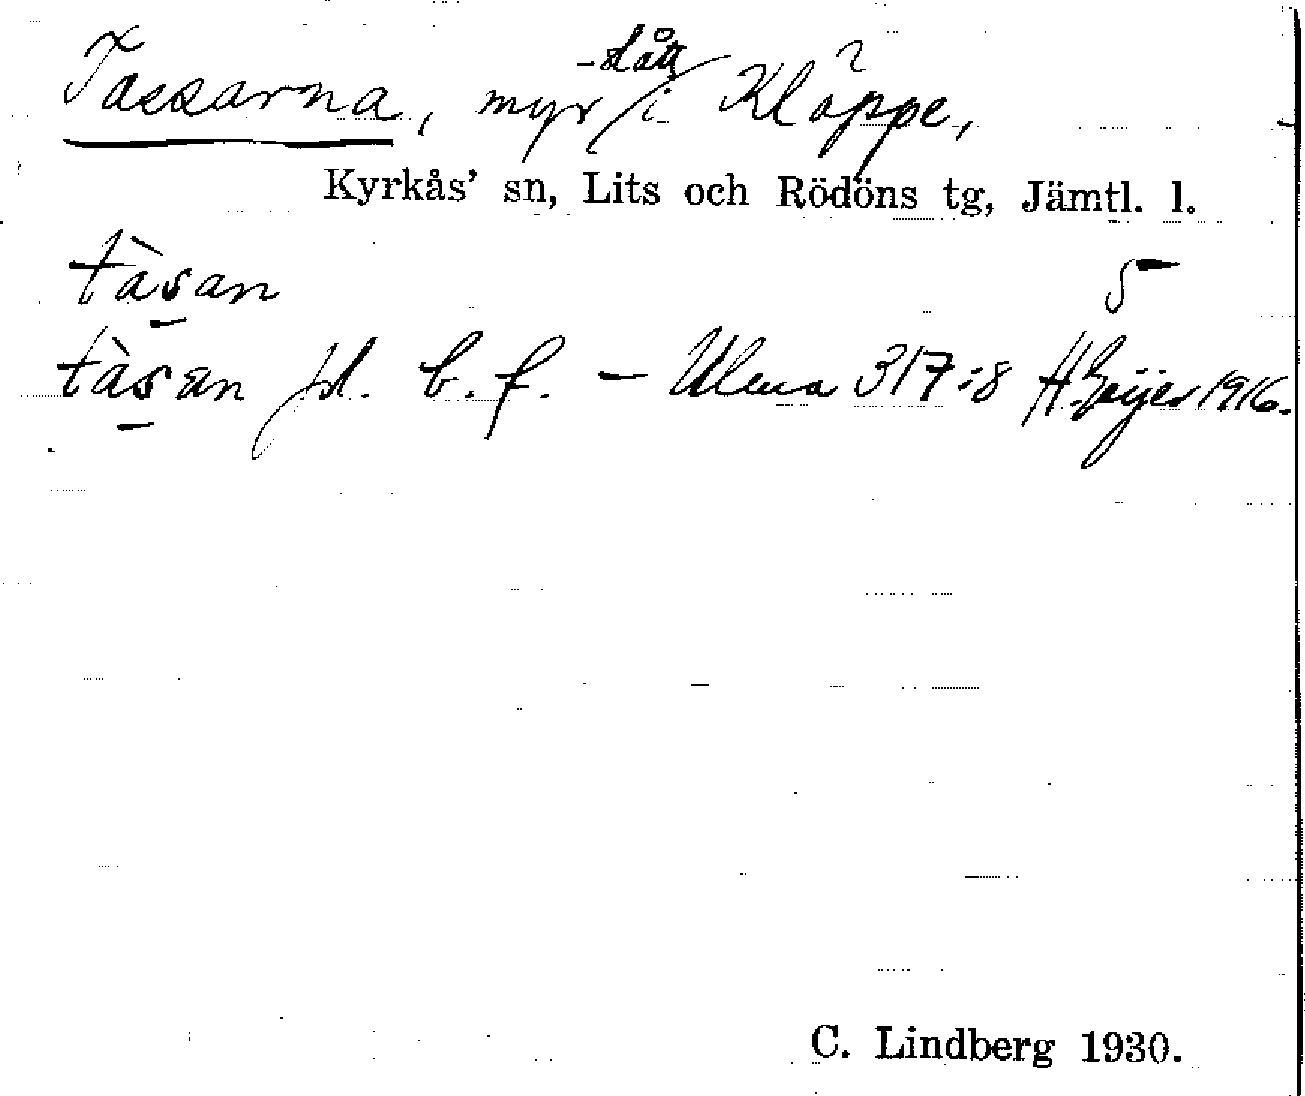 Tassarna, myr -slått i Kläppe,
Kyrkås' sn, Lits och Rödöns tg, Jämtl. l.
tàsan 5
tàsan pl. b. f. – Ulma 317:8 H. Geijer 1916.
C. Lindberg 1930.